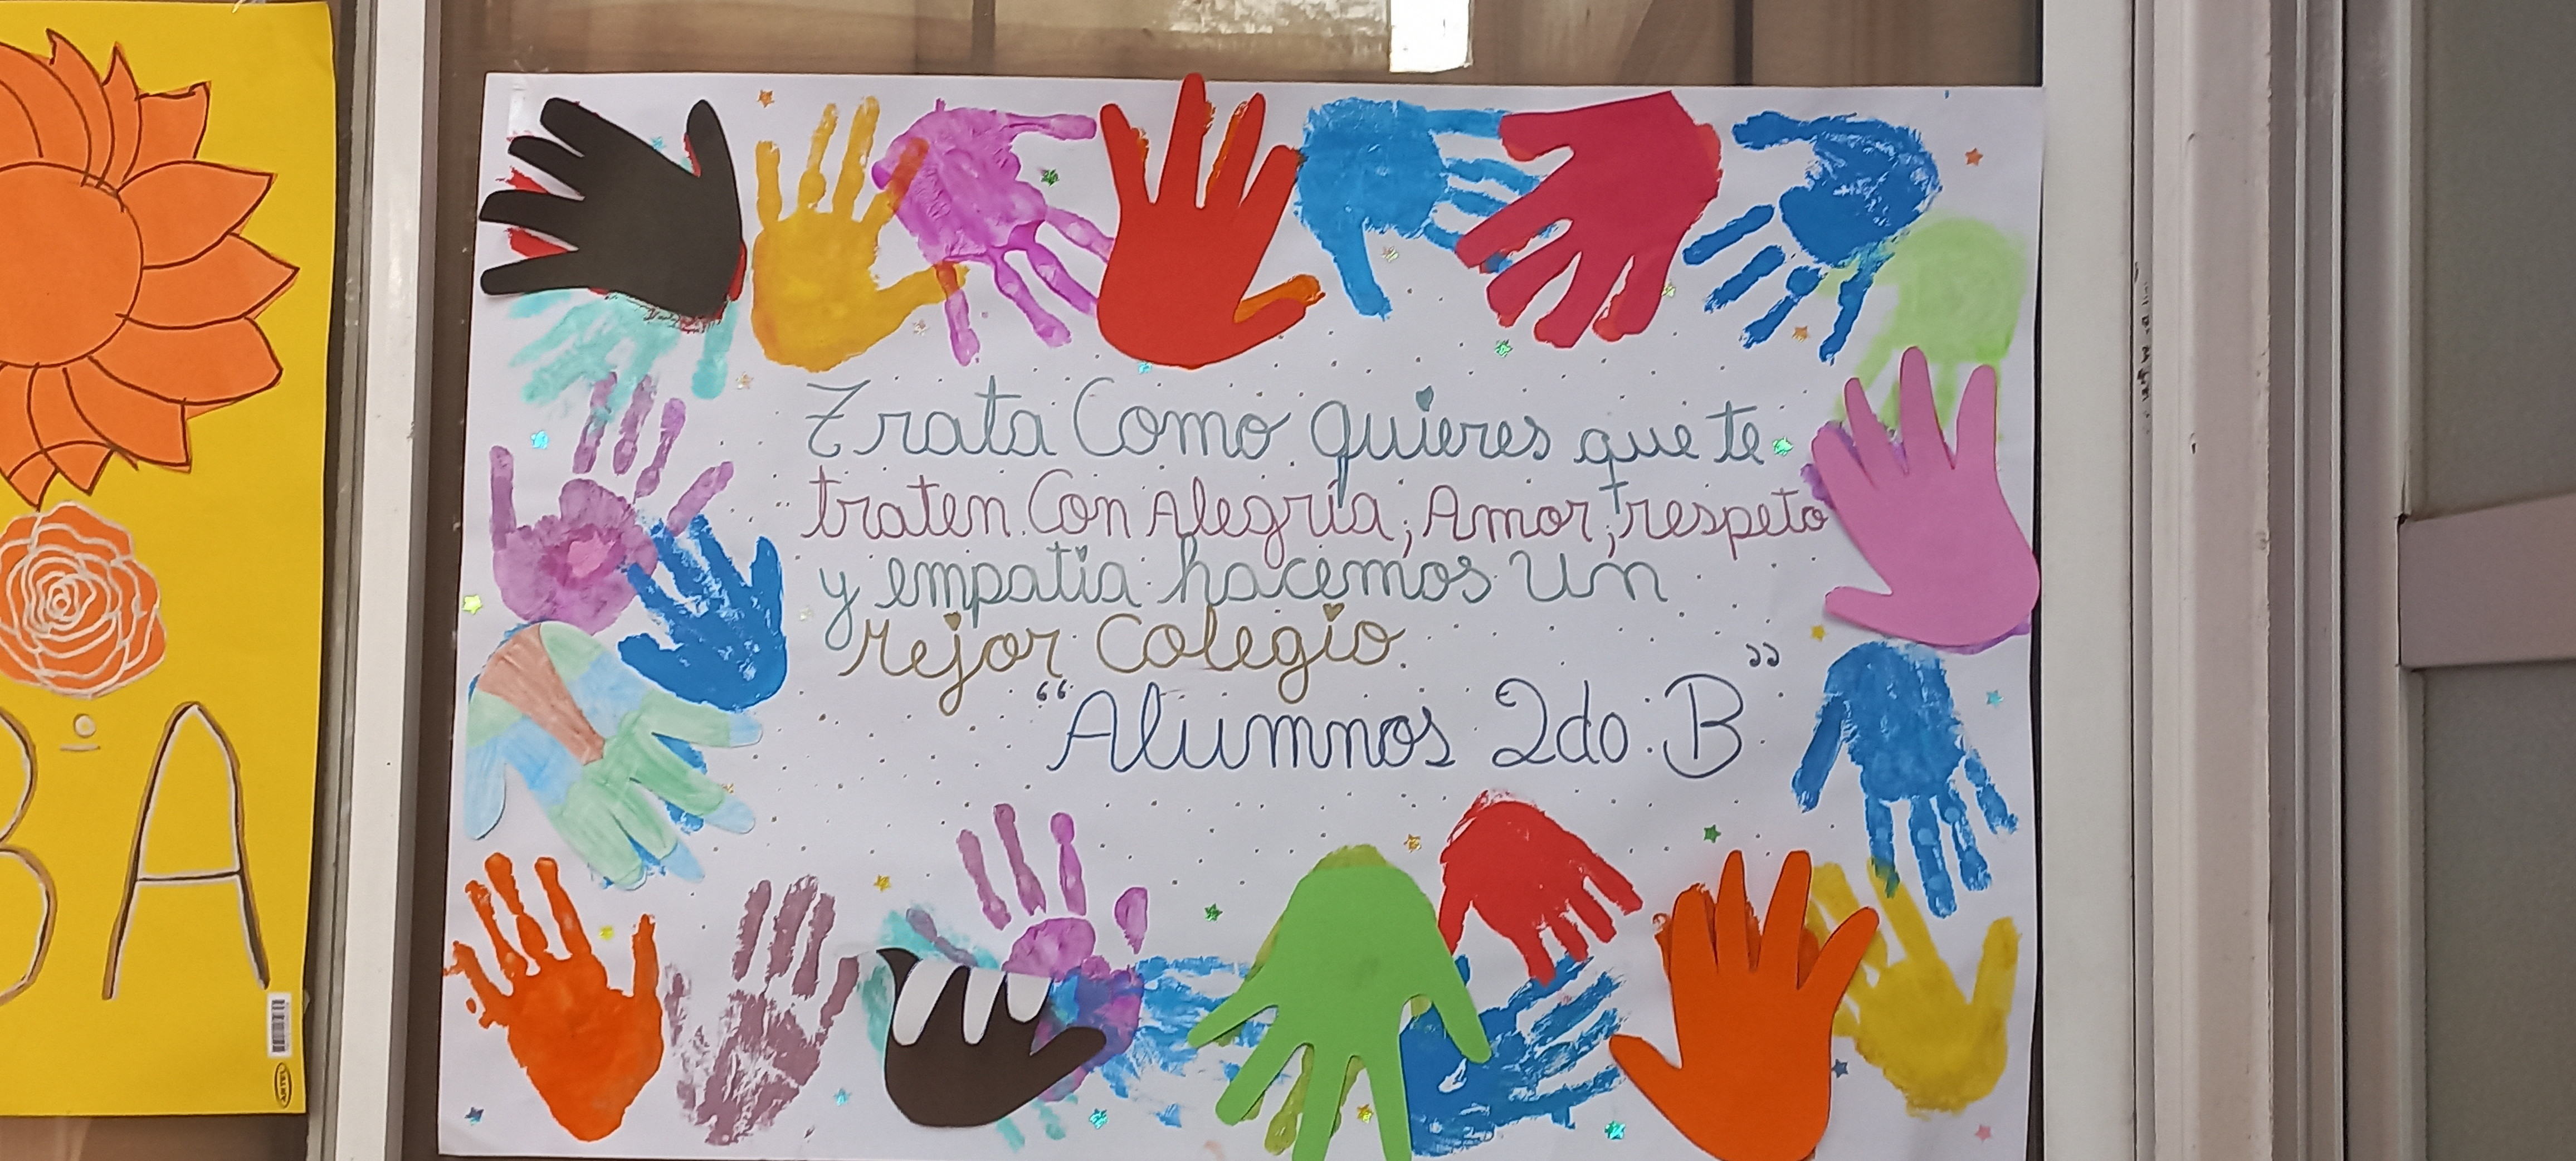 Trata Como quieres que te
traten Con Alegría, Amor, respeto
y empatía hacemos Un
rejor Colegio.
"Alumnos 2do. B"
BA
ARTEL